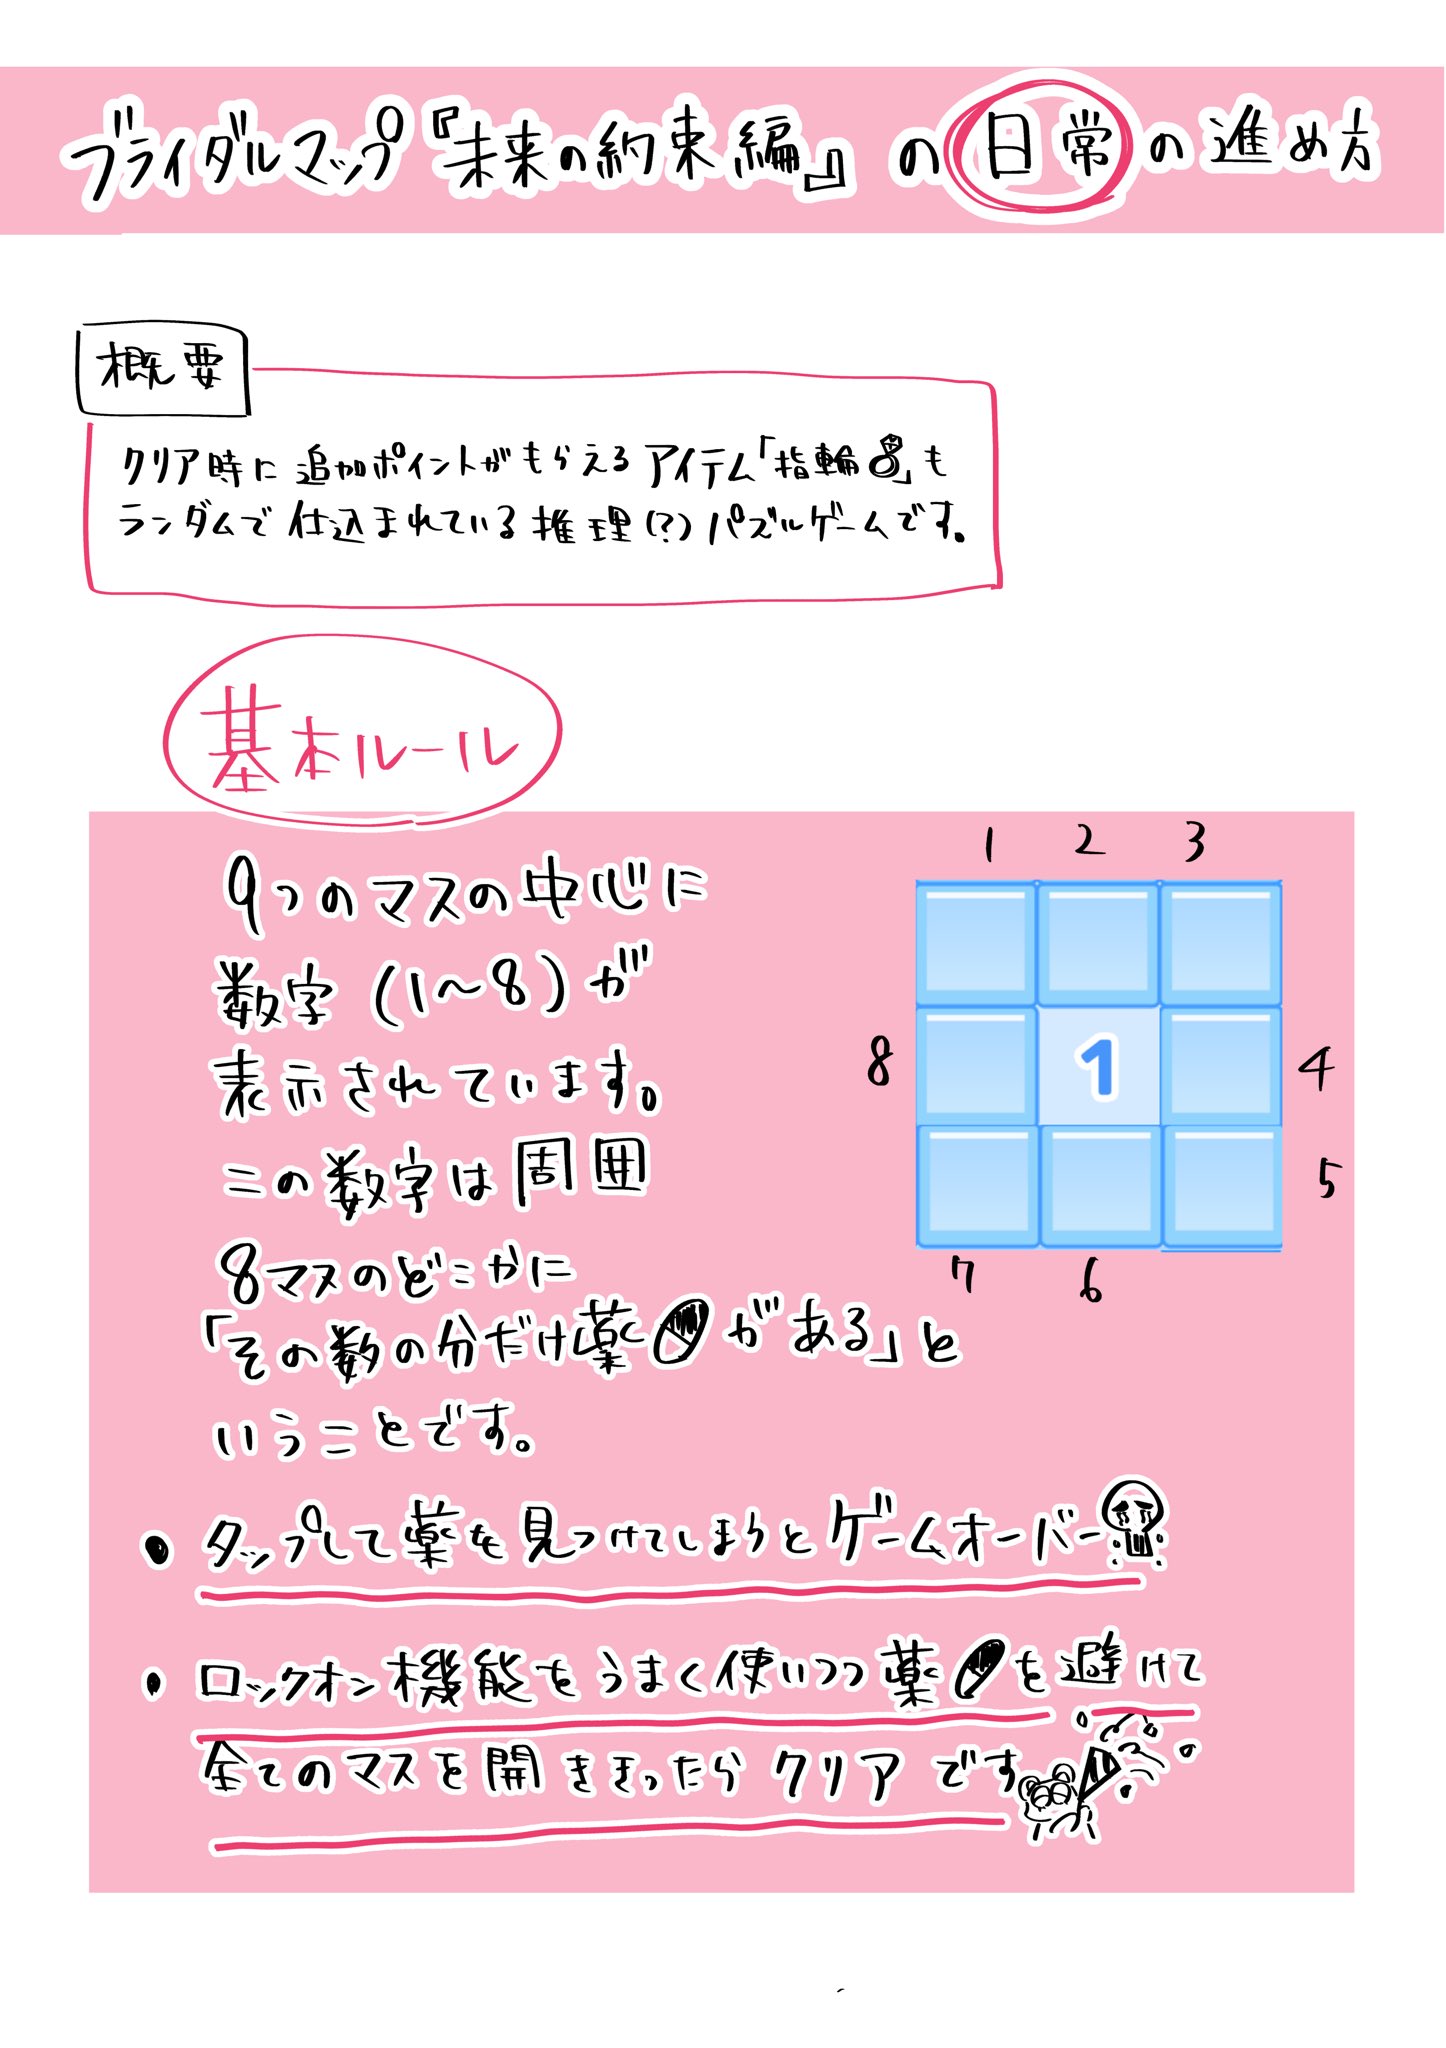 ブライダルマップ『未来の約束編』の日常の進め方
概要
クリア時に追加ポイントがもらえるアイテム「指輪」も
ランダムで仕込まれている推理(?)パズルゲームです。
基本ルール
9つのマスの中心に
数字(1〜8)が
表示されています。
この数字は周囲
8マスのどこかに
「その数の分だけ薬がある」と
いうことです。
1 2 3
8 1 4
5
7 6
・タップして薬を見つけてしまうとゲームオーバー
・ロックオン機能をうまく使いつつ薬を避けて
全てのマスを開ききったらクリアです